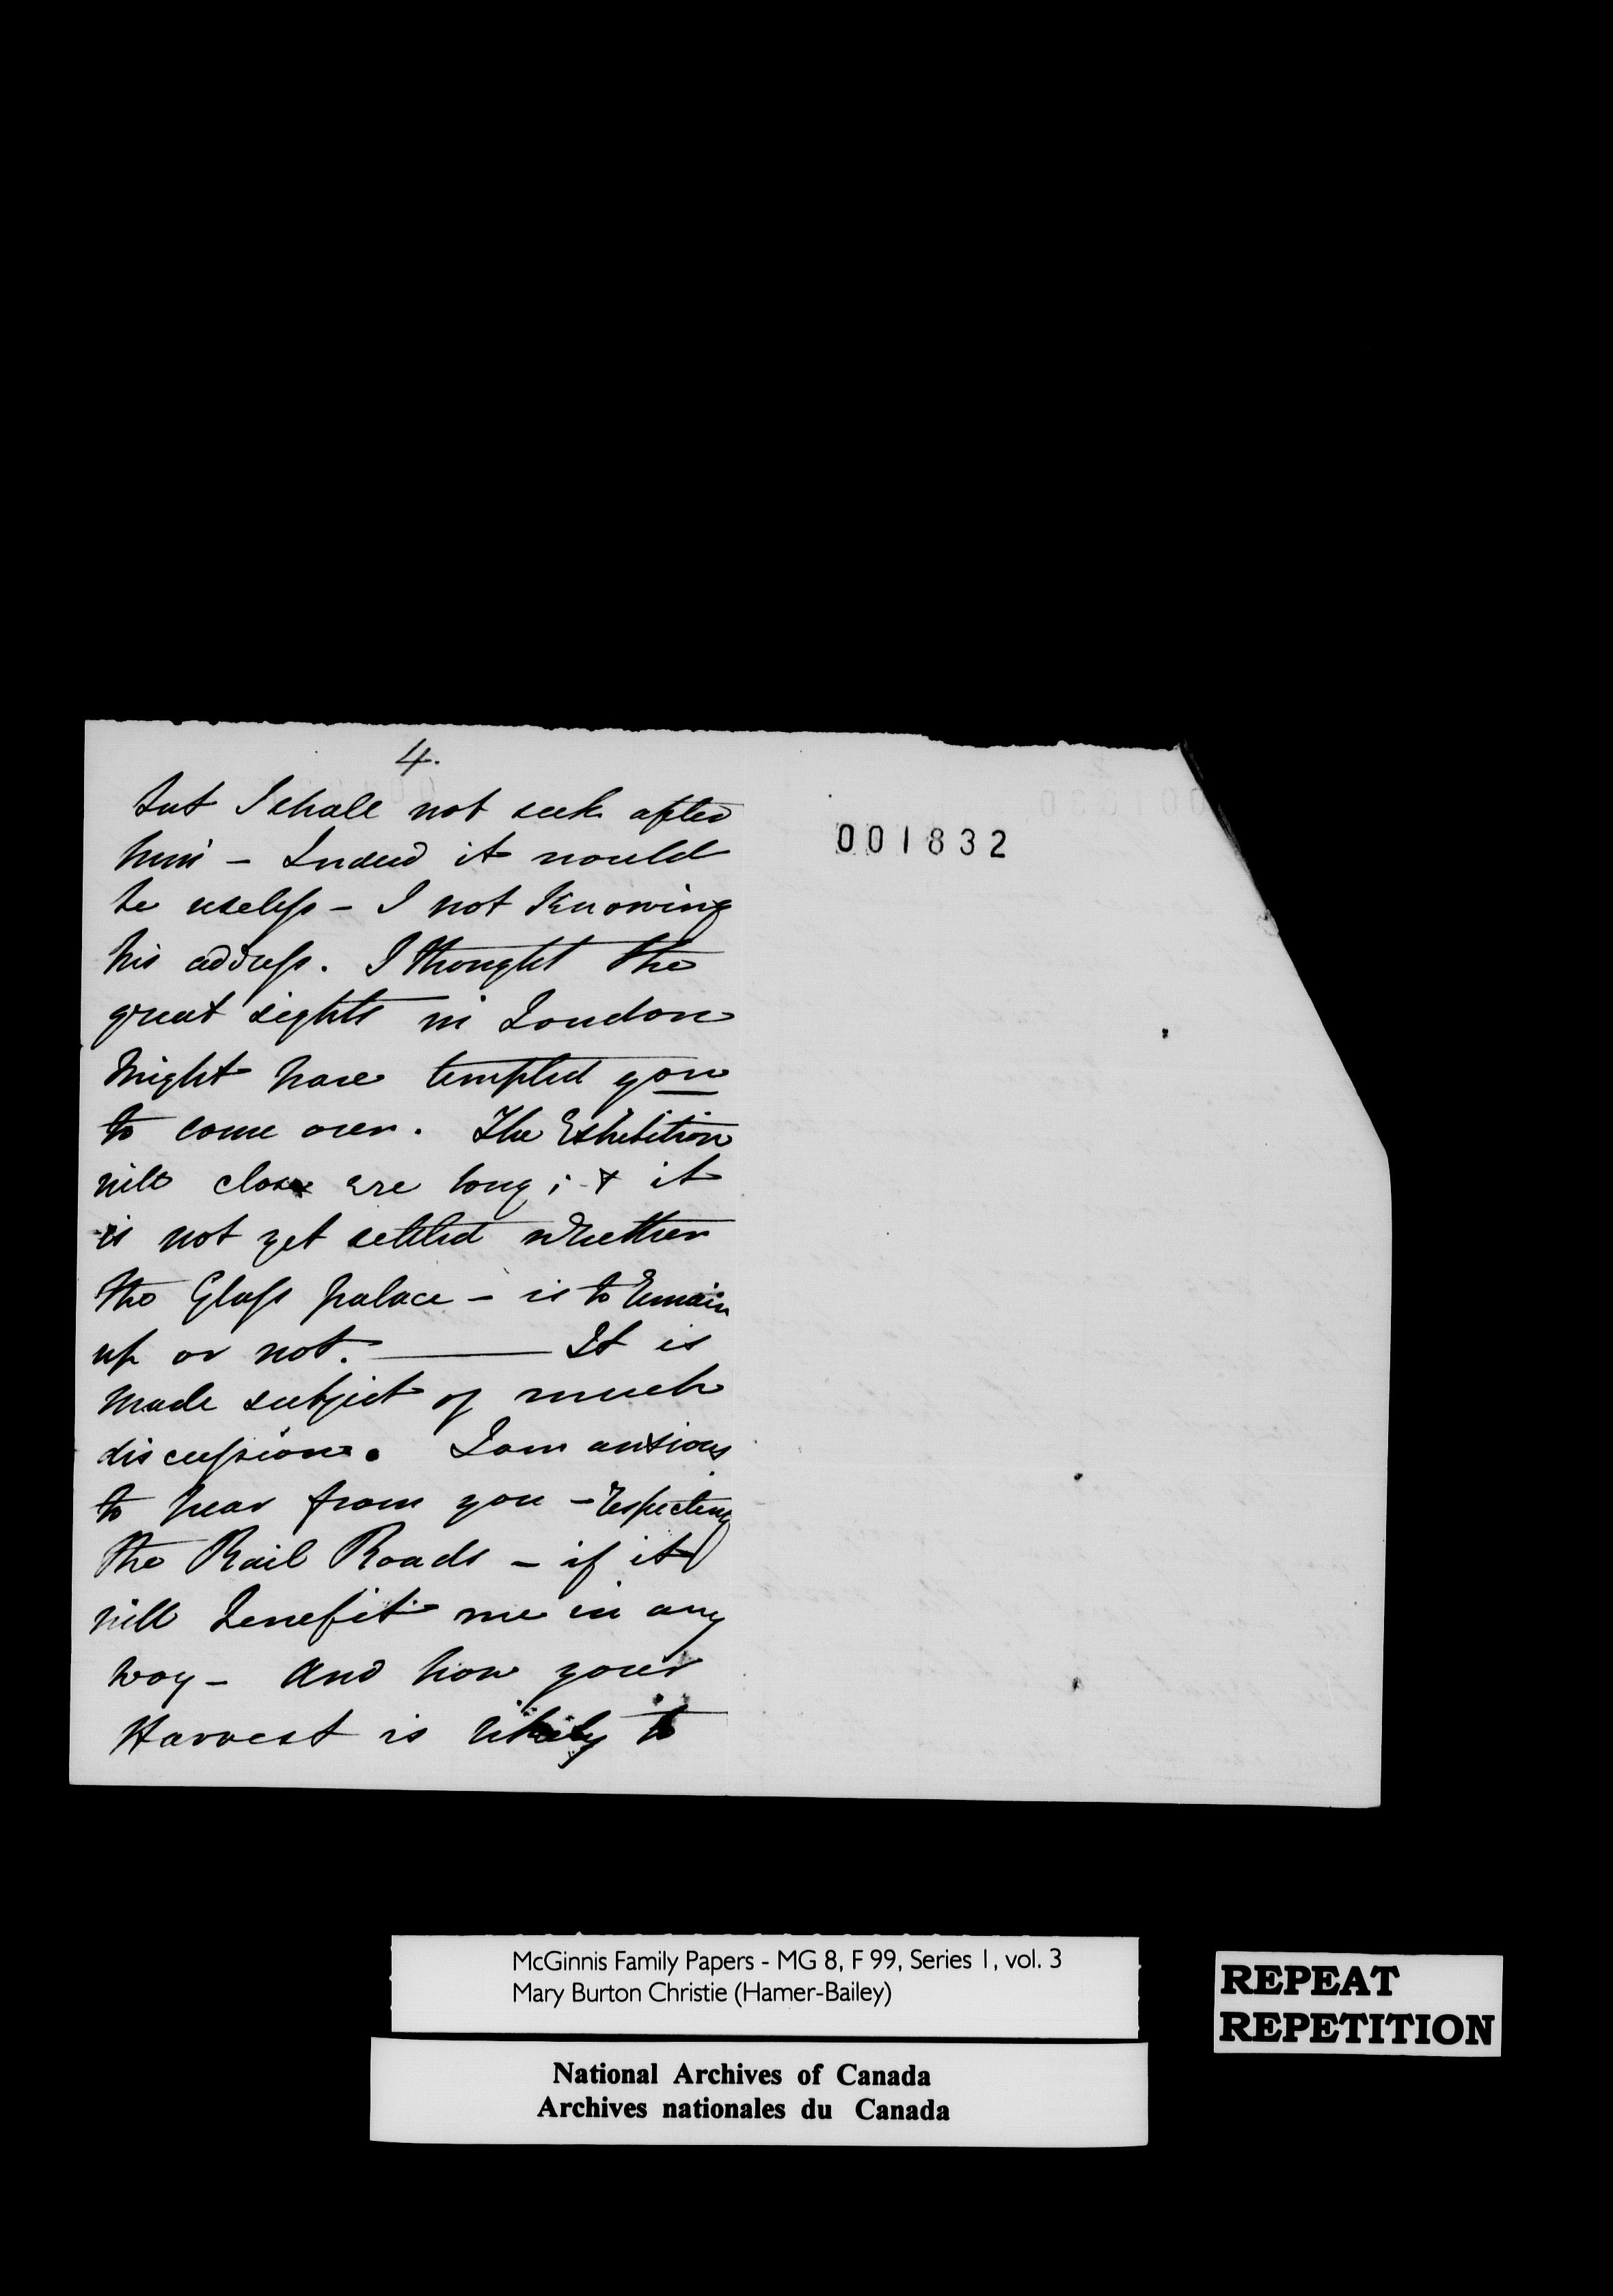 4.
but I shall not seek after
him – Indeed it would
be useless – I not knowing
his address. I thought the
great sights in London
might have tempted you
to come over. The Exhibition
will close ere long; & it
is not yet settled whether
the Glass palace – is to remain
up or not. —— It is
made subject of much
discussion. I am anxious
to hear from you – respecting
the Rail Roads – if it
will benefit me in any
way – And how your
Harvest is likely to
001832
McGinnis Family Papers - MG 8, F 99, Series 1, vol. 3
Mary Burton Christie (Hamer-Bailey)
REPEAT
REPETITION
National Archives of Canada
Archives nationales du Canada